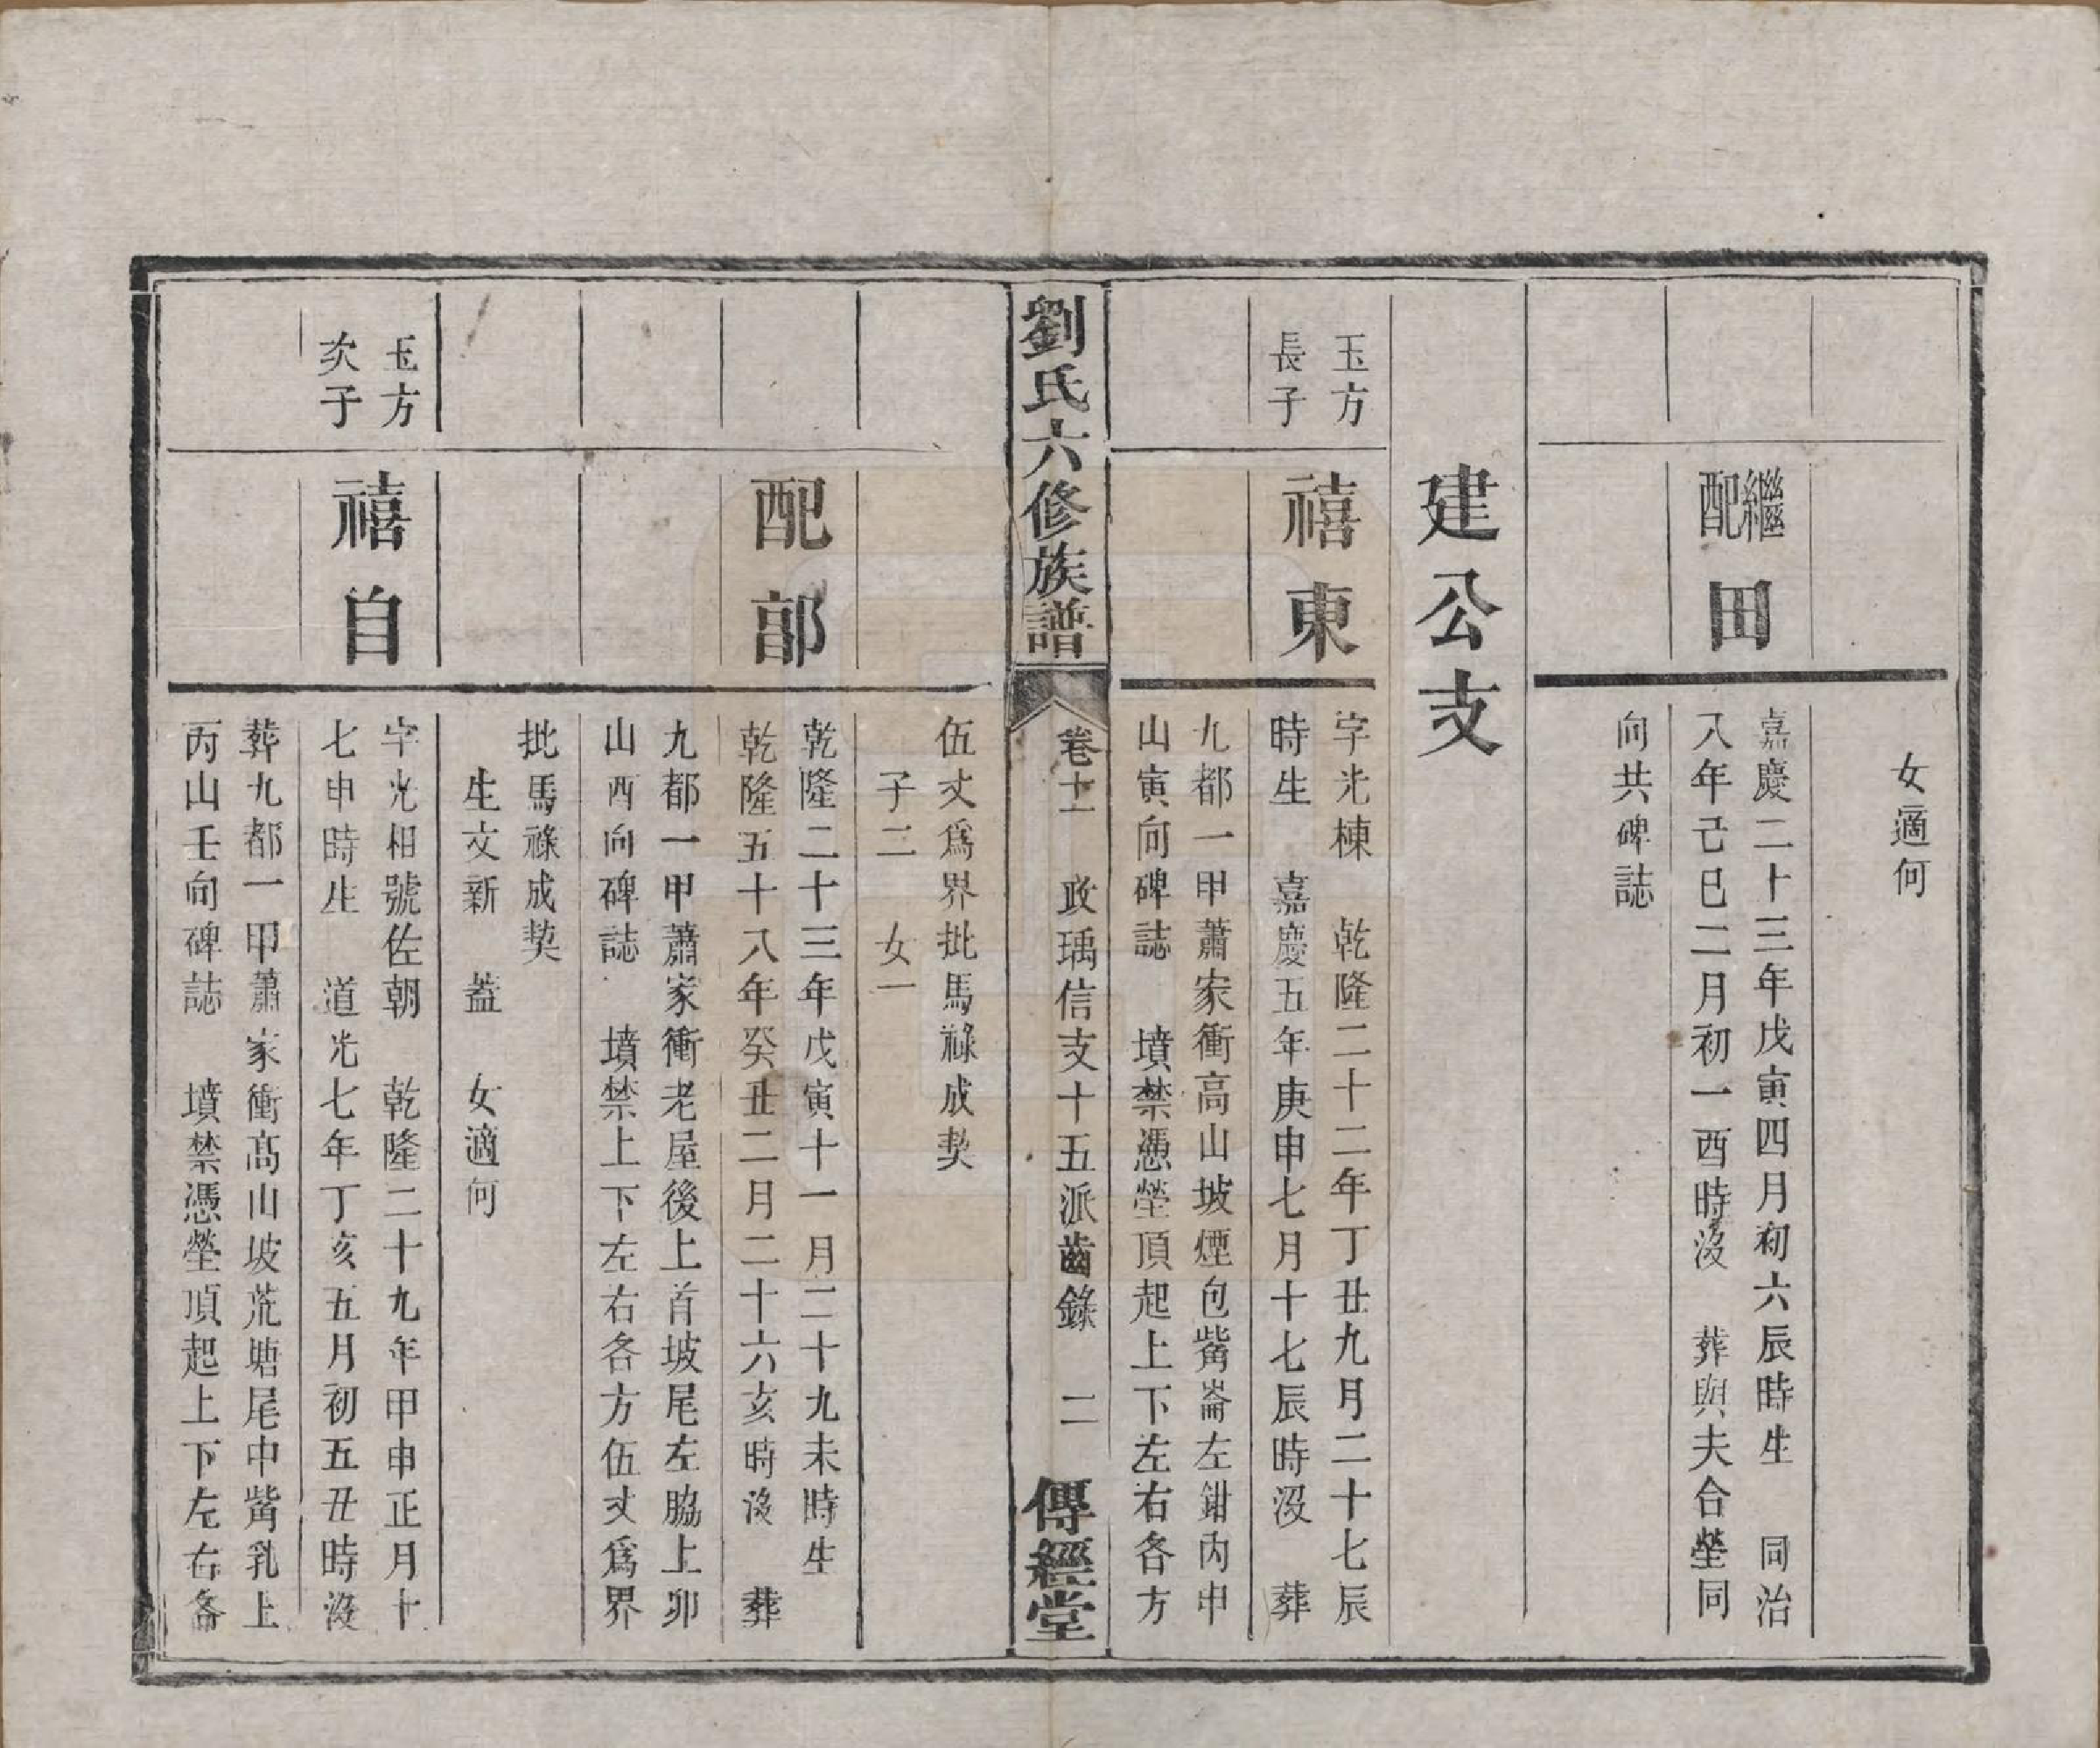 女適何
繼配田
嘉慶二十三年戊寅四月初六辰時生　同治
八年己巳二月初一酉時沒　葬與夫合塋同
向共碑誌
建公支
玉方
長子
禧東
字光棟　乾隆二十二年丁丑九月二十七辰
時生　嘉慶五年庚申七月十七辰時沒　葬
九都一甲蕭家衝高山坡煙包嘴崙左鉗丙申
山寅向碑誌　墳禁憑塋頂起上下左右各方
劉氏六修族譜
卷十一　政瑀信支十五派齒錄　二
傳經堂
伍丈爲界批馬祿成契
子二　女一
配郚
乾隆二十三年戊寅十一月二十九未時生
乾隆五十八年癸丑二月二十六亥時沒　葬
九都一甲蕭家衝老屋後上首坡尾左脇上卯
山酉向碑誌　墳禁上下左右各方伍丈爲界
批馬祿成契
生文新　蓋　女適何
玉方
次子
禧自
字光相號佐朝　乾隆二十九年甲申正月十
七申時生　道光七年丁亥五月初五丑時沒
葬九都一甲蕭家衝高山坡荒塘尾中嘴乳上
丙山壬向碑誌　墳禁憑塋頂起上下左右各